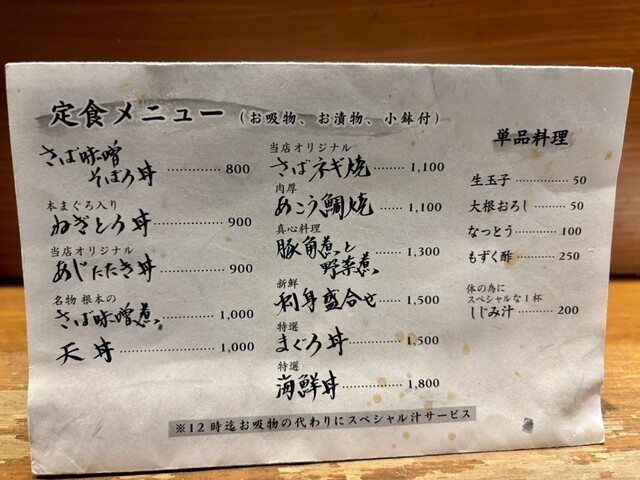 定食メニュー（お吸物、お漬物、小鉢付）
さば味噌
そぼろ丼 800
本まぐろ入り
ねぎとろ丼 900
当店オリジナル
あじたたき丼 900
名物 根本の
さば味噌煮 1,000
天丼 1,000
当店オリジナル
さばネギ焼 1,100
肉厚
あこう鯛焼 1,100
真心料理
豚角煮と
野菜煮 1,300
新鮮
刺身盛合せ 1,500
特選
まぐろ丼 1,500
特選
海鮮丼 1,800
単品料理
生玉子 50
大根おろし 50
なっとう 100
もずく酢 250
体の為に
スペシャルな1杯
しじみ汁 200
※12時迄お吸物の代わりにスペシャル汁サービス